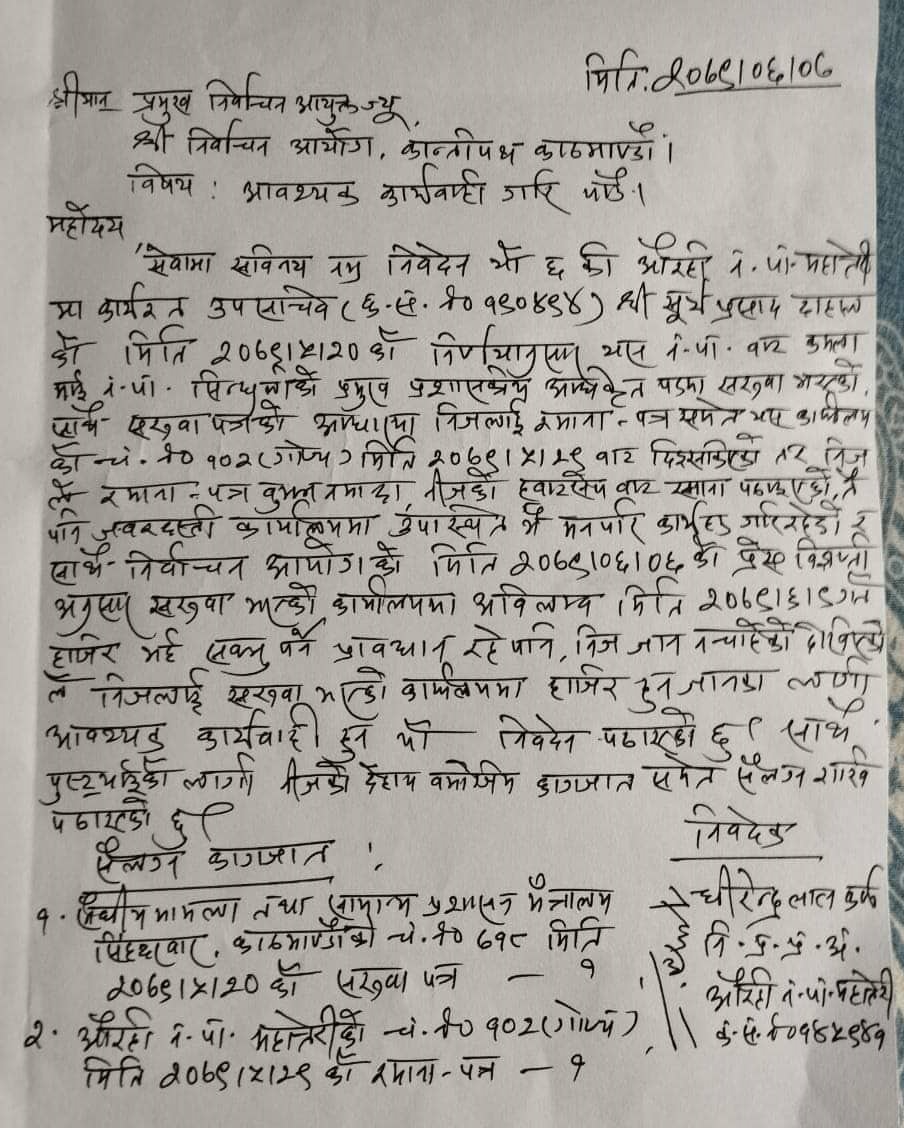 मिति: २०७९।०६।०७
श्रीमान प्रमुख निर्वाचन आयुक्त ज्यू,
श्री निर्वाचन आयोग, कान्तीपथ काठमाण्डौ।
विषय: आवश्यक कार्यवाही गरि पाँउ।
महोदय
सेवामा सविनय नम्र निवेदन यो छ की औरही न.पा. महोत्तरी
मा कार्यरत उपसचिव (क.सं.नं० १९०४९४) श्री सूर्य प्रसाद दाहाल
को मिति २०७९।५।२० को निर्णयानुसार यस न.पा. बाट कमला
माई न.पा. सिन्धुलीको प्रमुख प्रशासकीय अधिकृत पदमा सरुवा भएको,
साथै सरुवा पत्रको आधारमा निजलाई रमाना-पत्र समेत यस कार्यालय
को च.नं० १०२(गोप्य) मिति २०७९।५।२९ बाट दिइसकिएको तर निज
ले रमाना-पत्र बुझ्न नमान्दा, नीजको ह्वाटसेप बाट रमाना पठाएको, तै
पनि जवरदस्ती कार्यालयमा उपस्थित भै मनपरि कार्यहरु गरिरहेको र
साथै निर्वाचन आयोगको मिति २०७९।०६।०६ को प्रेस विज्ञप्ती
अनुसार सरुवा भएको कार्यालयमा अविलम्ब मिति २०७९।६।९ गते
हाजिर भई सक्नु पर्ने प्रावधान रहे पनि, निज जान नचाहेको देखिएको
ले निजलाई सरुवा भएको कार्यालयमा हाजिर हुन जानका लागी
आवश्यक कार्यवाही हुन यो निवेदन पठाएको छु। साथै
पुष्ट्याईको लागी नीजको देहाय बमोजिम कागजात समेत संलग्न राखि
पठाएको छु।
निवेदक
संलग्न कागजात:
१. संघीय मामिला तथा सामान्य प्रशासन मंत्रालय
सिंहदरवार, काठमाण्डौको च.नं० ७१८ मिति
२०७९।५।२० को सरुवा पत्र — १
२. औरही न.पा. महोत्तरीको च.नं० १०२(गोप्य)
मिति २०७९।५।२९ को रमाना-पत्र — १
धीरेन्द्र लाल कर्ण
नि.प्र.प्र.अ.
औरही न.पा. महोत्तरी
क.सं.नं० १४५९४१